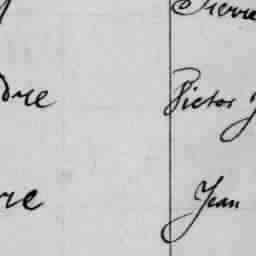 Pierre
dre Victor J
re Jean